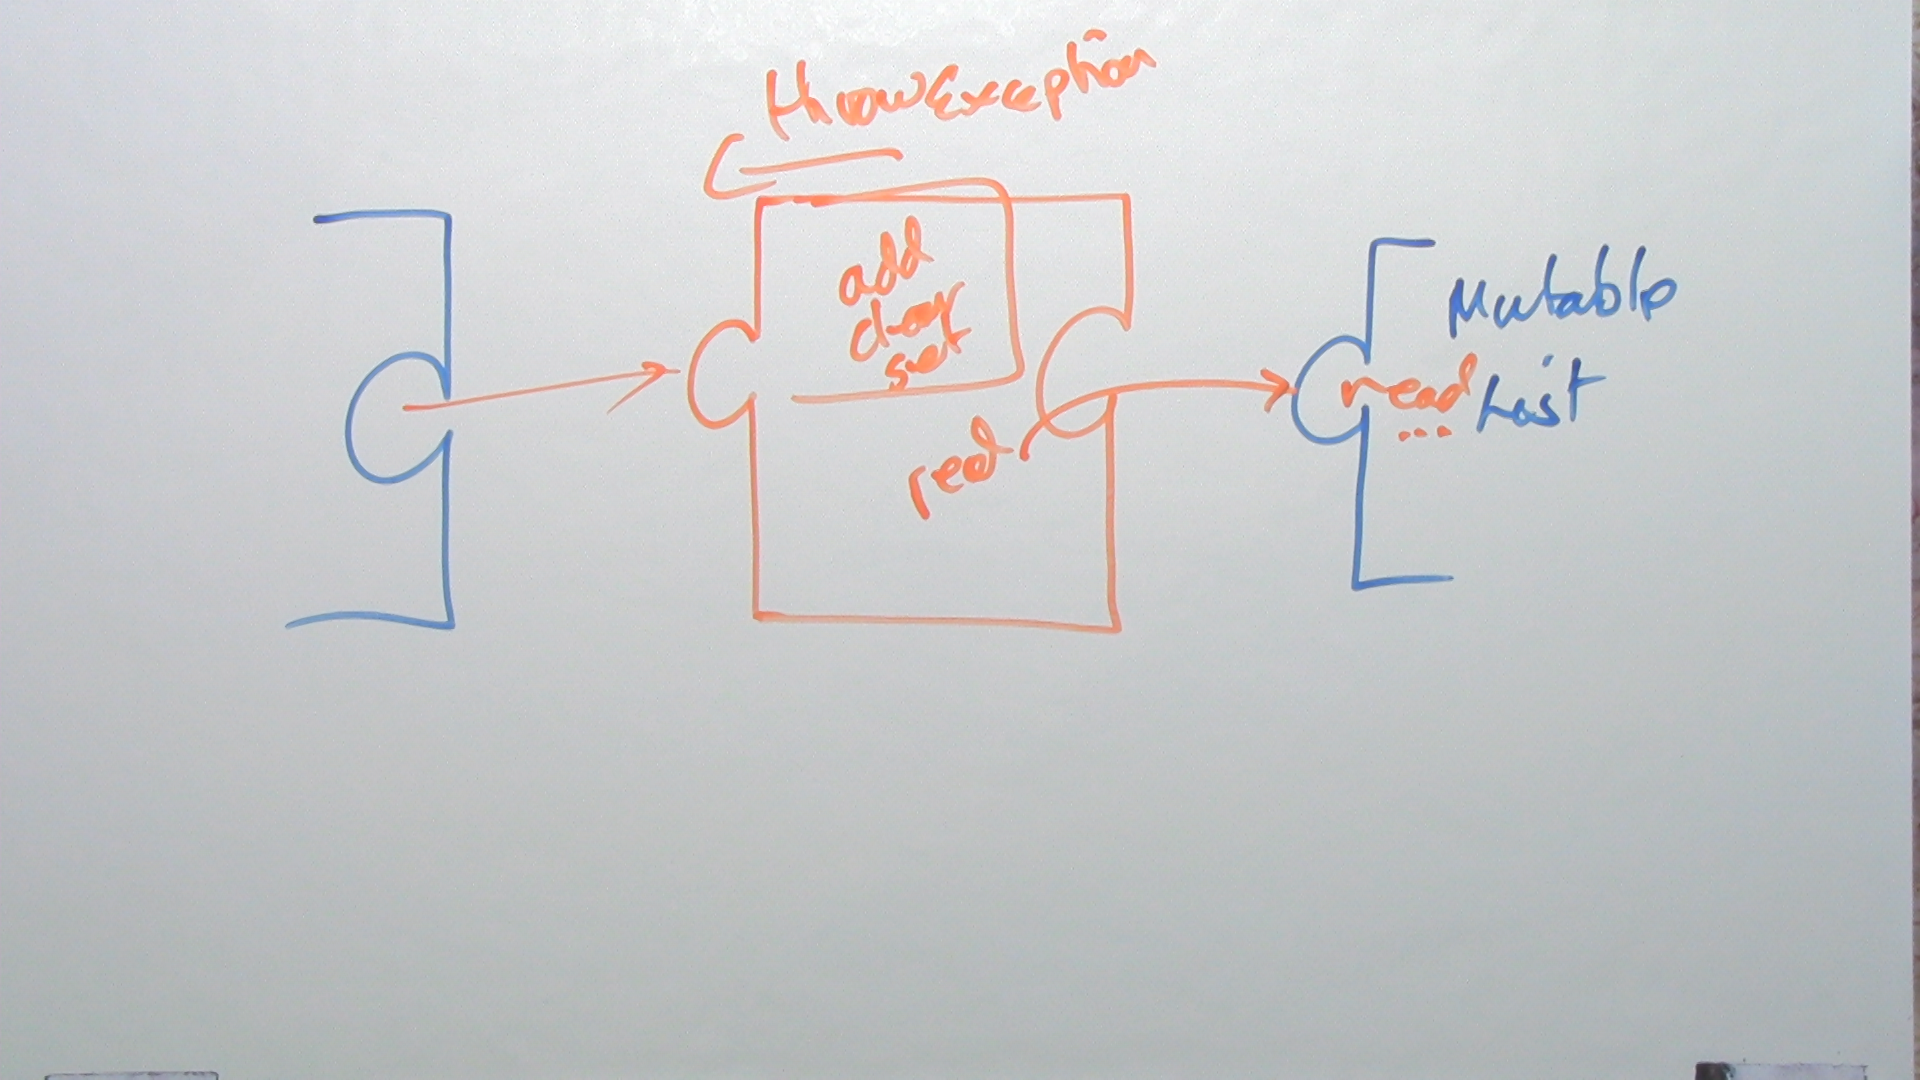 throwException
add
clear
set
read
Mutable
List
read
...